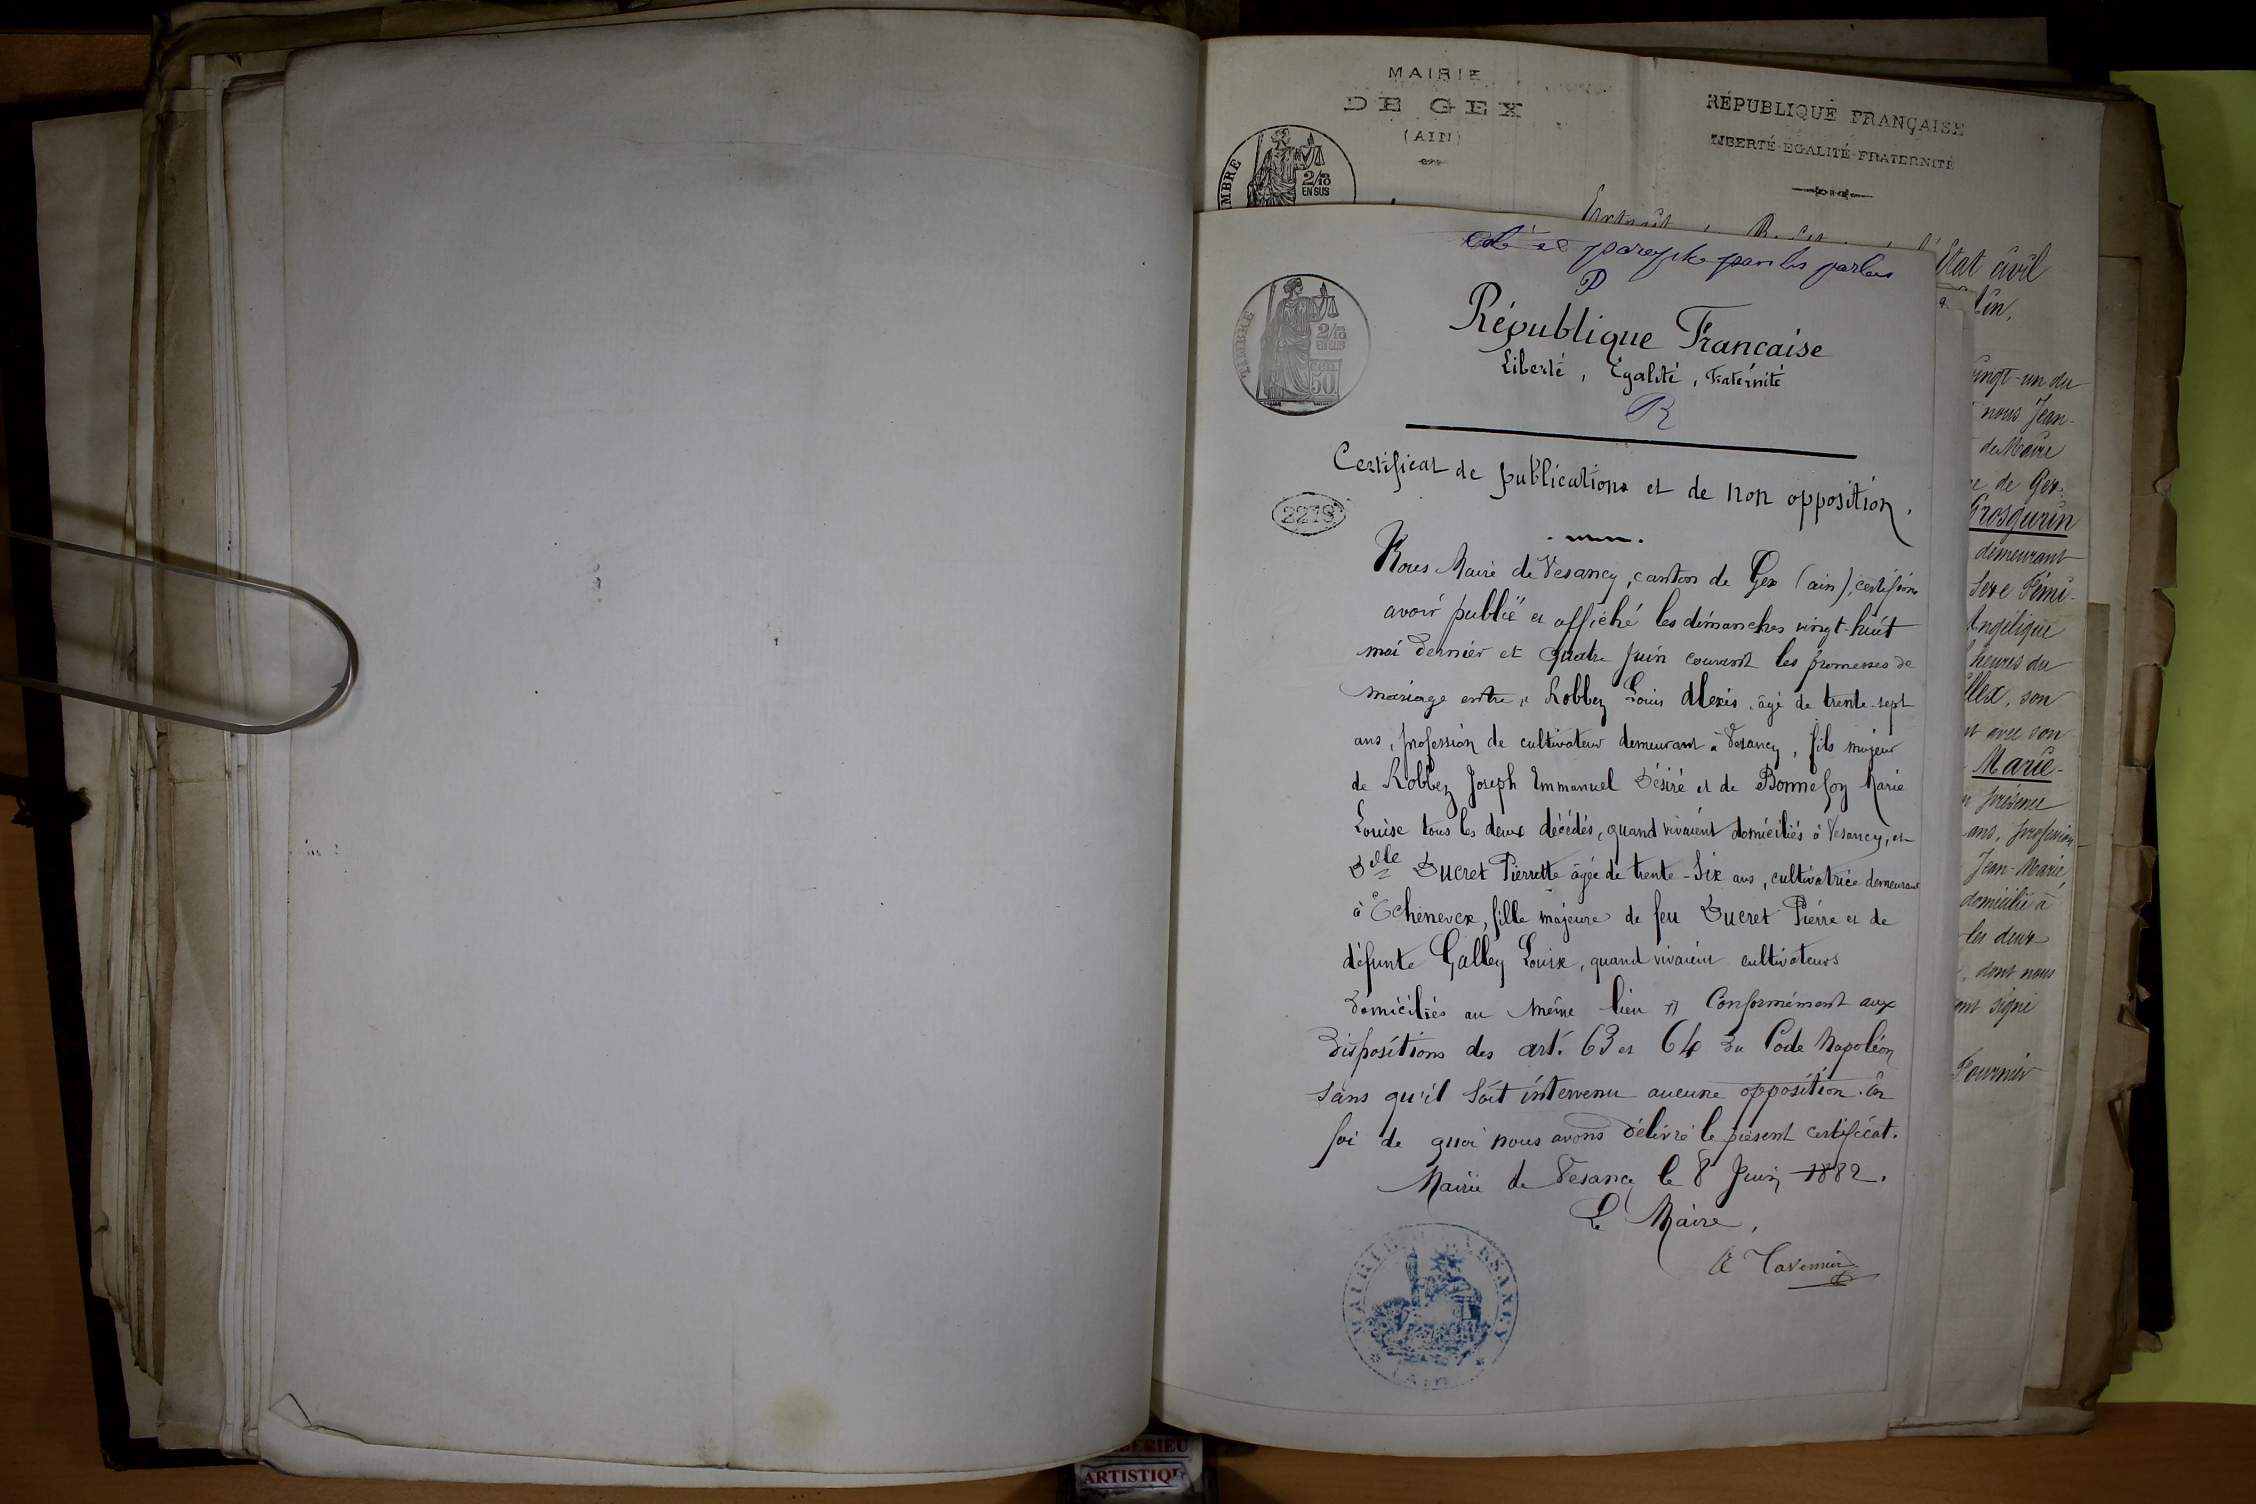 MAIRIE
DE GEX
(AIN)
RÉPUBLIQUE FRANÇAISE
LIBERTÉ-EGALITÉ-FRATERNITÉ
MBRE
2/10
EN SUS
Extrait
l'Etat civil
et paraphé par les parties
République Francaise
Liberté, Égalité, Fraternité
TIMBRE
2/10
EN SUS
50
Certificat de publications et de non opposition.
2219
Nous Maire de Vesancy, canton de Gex (ain), certifions
avoir publié et affiché les dimanches vingt-huit
mai dernier et quatre Juin courant les promesses de
mariage entre, Robbez Louis Alexis, âgé de trente-sept
ans, profession de cultivateur demeurant à Vesancy, fils majeur
de Robbez Joseph Emmanuel Désiré et de Bonnefoy Marie
Louise tous les deux décédés, quand vivaient domiciliés à Vesancy, et
Delle Ducret Pierrette âgée de trente-six ans, cultivatrice demeurant
à Echenevex, fille majeure de feu Ducret Pierre et de
défunte Galley Louise, quand vivaient cultivateurs
domiciliés au même lieu Conformément aux
dispositions des art. 63 et 64 du Code Napoléon
sans qu'il soit intervenu aucune opposition. En
foi de quoi nous avons délivré le présent certificat.
Mairie de Vesancy le 8 Juin 1882.
Le Maire,
Tavernier
MAIRIE DE VESANCY
(AIN)
vingt-un du
nous Jean-
de Maire
de Gex
Grosgurin
demeurant
sexe Fémi-
Angélique
heures du
son
avec son
Marie-
présence
ans, profession
Jean-Marie
domicilié à
les deux
, dont nous
ont signé
Fournier
ARTISTIQU